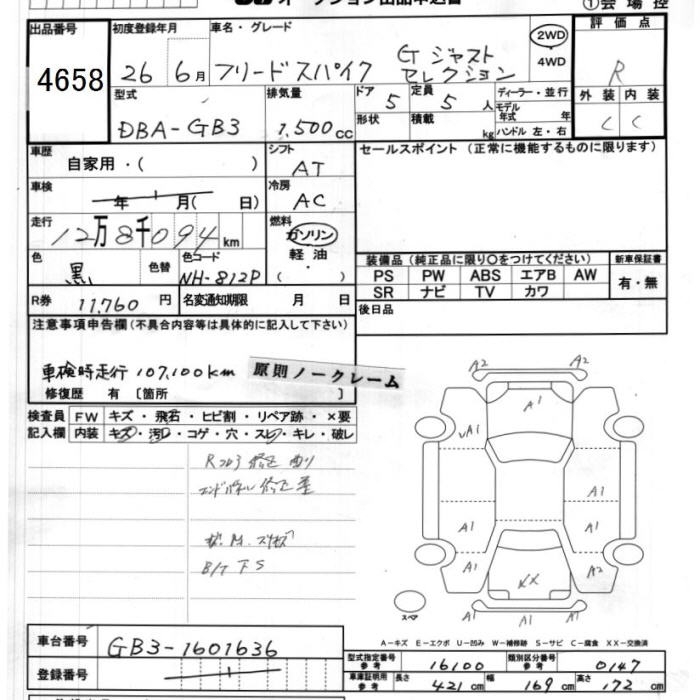 オークション出品申込書
①会場控
出品番号
4658
初度登録年月
26 6月
車名・グレード
フリードスパイク
G ジャスト
セレクション
2WD
・
4WD
評価点
R
外装 内装
C C
型式
DBA-GB3
排気量
1,500cc
ドア 5
定員 5 人
形状
積載 kg
ディーラー・並行
モデル年式 年
ハンドル 左・右
車歴
自家用・( )
シフト
AT
セールスポイント(正常に機能するものに限ります)
車検
年 月( 日)
冷房
AC
走行
12万8千094km
燃料
ガソリン
軽油
・
( )
色
黒
色替
色コード
NH-812P
装備品(純正品に限り〇をつけてください)
PS PW ABS エアB AW
SR ナビ TV カワ
新車保証書
有・無
R券 11,760 円
名変通知期限 月 日
後日品
注意事項申告欄(不具合内容等は具体的に記入して下さい)
車検時走行 107,100km
原則ノークレーム
修復歴 有〔箇所 〕
検査員記入欄
FW キズ・飛石・ヒビ割・リペア跡・×要
内装 キズ・汚レ・コゲ・穴・スレ・キレ・破レ
エンドパネル 修正 歪
B/T下S
A2 A2
A1
A1
A1
A1 A1
A1 A2
XX
A1 A1
スペア
A-キズ E-エクボ U-凹み W-補修跡 S-サビ C-腐食 XX-交換済
車台番号 GB3-1601636
登録番号
型式指定番号 参考 16100
類別区分番号 参考 0147
車庫証明用 参考 長さ 421cm 幅 169cm 高さ 172cm